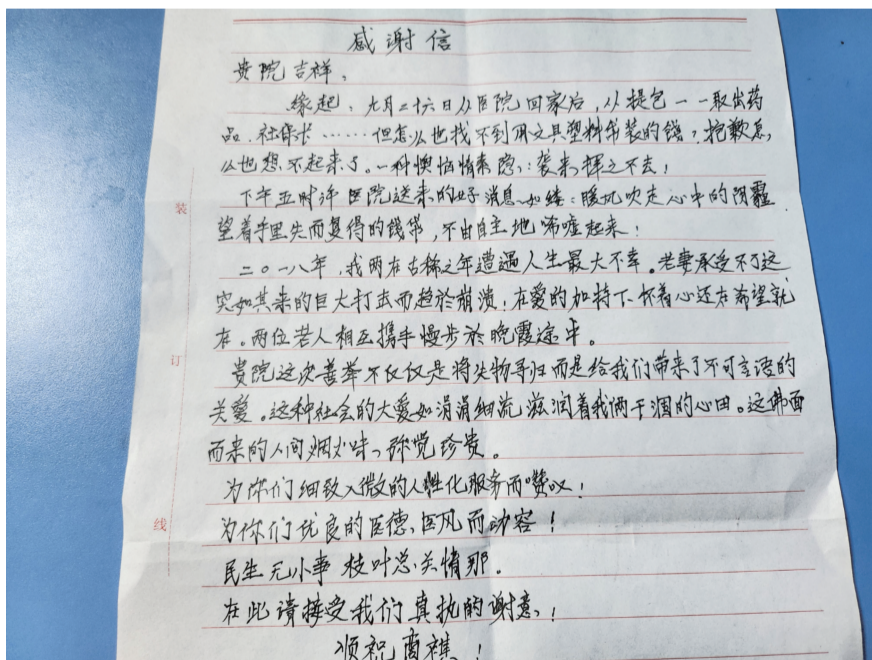 感谢信
贵院吉祥,
缘起:九月二十六日从医院回家后,从提包一一取出药
品、社保卡……但怎么也找不到用文具塑料吊装的钱?抱歉怎
么也想不起来了。一种懊恼情素隐隐袭来挥之不去!
下午五时许医院送来的好消息如缕缕暖风吹走心中的阴霾
望着手里失而复得的钱袋,不由自主地唏嘘起来!
二〇一八年,我两在古稀之年遭遇人生最大不幸。老妻承受不了这
突如其来的巨大打击而趋於崩溃!在爱的加持下怀着心还在希望就
在。两位老人相互携手慢步於晚霞途中。
贵院这次善举不仅仅是将失物寻归而是给我们带来了不可言语的
关爱。这种社会的大爱如涓涓细流滋润着我俩干涸的心田。这拂面
而来的人间烟火味,弥觉珍贵。
为你们细致入微的人性化服务而赞叹!
为你们优良的医德、医风而动容!
民生无小事 枝叶总关情那。
在此请接受我们真执的谢意!
顺祝商祺!
装
订
线